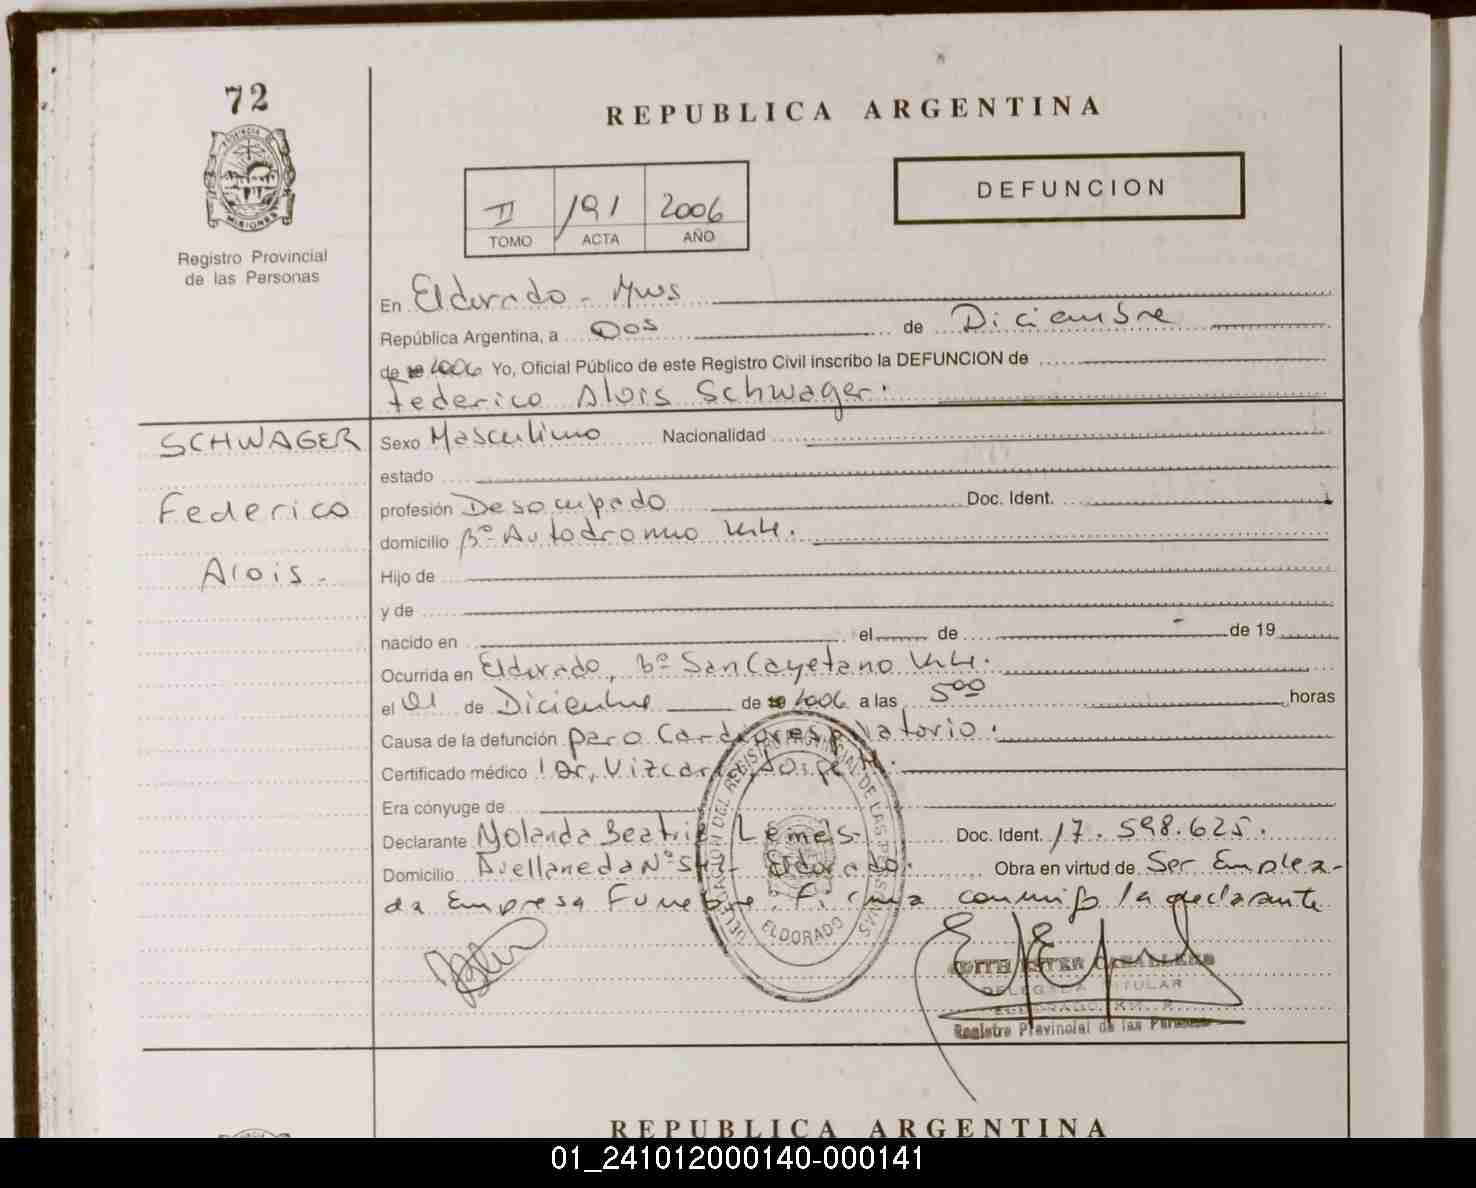 72
REPUBLICA ARGENTINA
MISIONES
Registro Provincial
de las Personas
DEFUNCION
II 191 2006
TOMO ACTA AÑO
En Eldorado - Mns
República Argentina, a Dos de Diciembre
de 2006 Yo, Oficial Público de este Registro Civil inscribo la DEFUNCION de
Federico Alois Schwager.
SCHWAGER
Federico
Alois.
Sexo Masculino Nacionalidad
estado
profesión Desocupado Doc. Ident.
domicilio Bº Autodromo
Hijo de
y de
nacido en el de de 19
Ocurrida en Eldorado, Bº San Cayetano
el 01 de Diciembre de 2006 a las 500 horas
Causa de la defunción paro Cardiorespiratorio.
Certificado médico Dr. Jorge H.
Era cónyuge de
Declarante Yolanda Beatriz Lemes Doc. Ident. 17.598.625.
Domicilio Avellaneda Nº Eldorado. Obra en virtud de Ser Emplea-
da Empresa Funebre. Firma conmigo la declarante
DELEGACION DEL REGISTRO PROVINCIAL DE LAS PERSONAS
ELDORADO
EDITH ESTER CABALLERO
DELEGADA TITULAR
ELDORADO, KM.
Registro Provincial de las Personas
REPUBLICA ARGENTINA
01_241012000140-000141